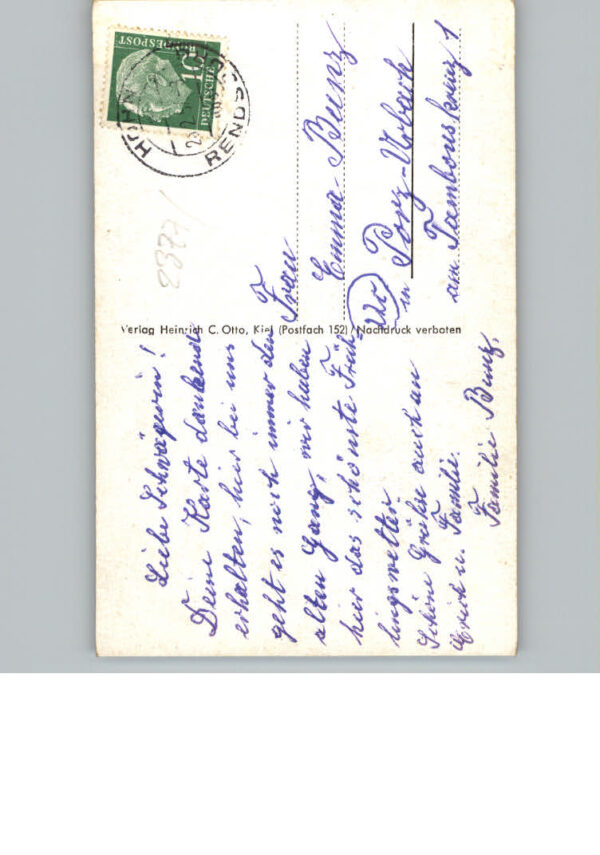 Liebe Schwägerin!
Deine Karte dankend
erhalten, hier bei uns
geht es noch immer den
alten Gang, wir haben
hier das schönste Früh-
lingswetter
Schöne Grüße auch an
Erich u. Familie.
Familie Bunz.
Verlag Heinrich C. Otto, Kiel (Postfach 152) / Nachdruck verboten
Frau
Emma Bunz
in Porz-Urbach
am Tambourskreuz 1
10
DEUTSCHE
BUNDESPOST
HOHN
RENDSB